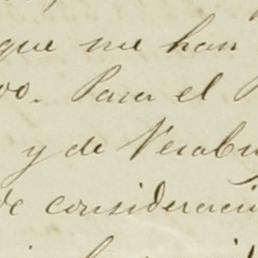 que me han
vo. Para el
y de Verabu
de consideraci